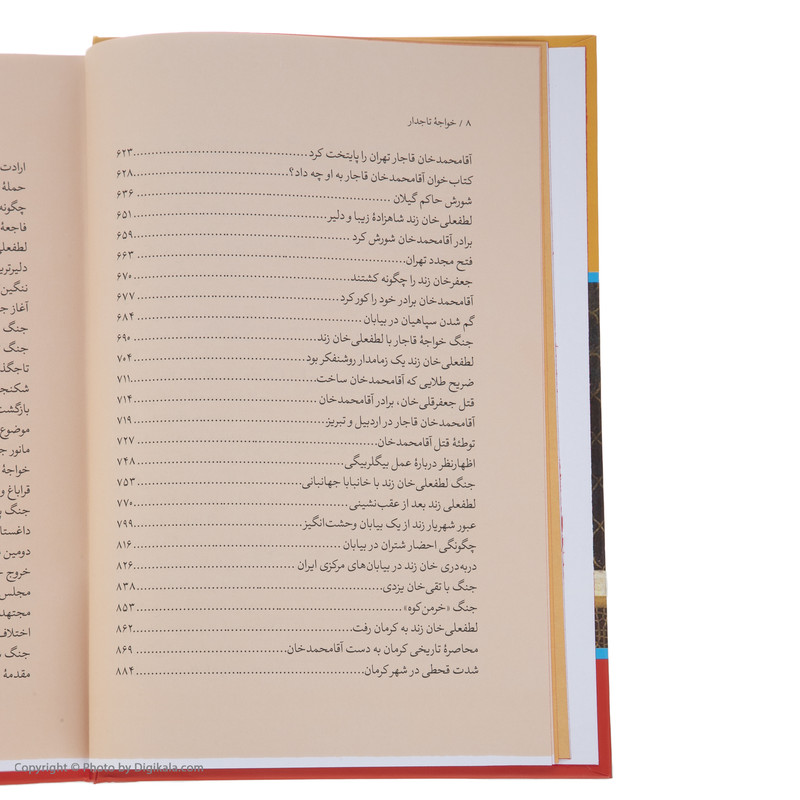 ۸ / خواجهٔ تاجدار
آقامحمدخان قاجار تهران را پایتخت کرد ........ ۶۲۳
کتاب‌خوان آقامحمدخان قاجار به او چه داد؟ ........ ۶۲۸
شورش حاکم گیلان ........ ۶۳۶
لطفعلی‌خان زند شاهزادهٔ زیبا و دلیر ........ ۶۵۱
برادر آقامحمدخان شورش کرد ........ ۶۵۹
فتح مجدد تهران ........ ۶۶۳
جعفرخان زند را چگونه کشتند ........ ۶۷۰
آقامحمدخان برادر خود را کور کرد ........ ۶۷۷
گم شدن سپاهیان در بیابان ........ ۶۸۴
جنگ خواجهٔ قاجار با لطفعلی‌خان زند ........ ۶۹۰
لطفعلی‌خان زند یک زمامدار روشنفکر بود ........ ۷۰۴
ضریح طلایی که آقامحمدخان ساخت ........ ۷۱۱
قتل جعفرقلی‌خان، برادر آقامحمدخان ........ ۷۱۴
آقامحمدخان قاجار در اردبیل و تبریز ........ ۷۱۹
توطئهٔ قتل آقامحمدخان ........ ۷۲۷
اظهارنظر دربارهٔ عمل بیگلربیگی ........ ۷۴۸
جنگ لطفعلی‌خان زند با خانبابا جهانبانی ........ ۷۵۳
لطفعلی زند بعد از عقب‌نشینی ........ ۷۷۰
عبور شهریار زند از یک بیابان وحشت‌انگیز ........ ۷۹۹
چگونگی احضار شتران در بیابان ........ ۸۱۶
دربه‌دری خان زند در بیابان‌های مرکزی ایران ........ ۸۲۶
جنگ با تقی‌خان یزدی ........ ۸۳۸
جنگ «خرمن‌کوه» ........ ۸۵۳
لطفعلی‌خان زند به کرمان رفت ........ ۸۶۲
محاصرهٔ تاریخی کرمان به دست آقامحمدخان ........ ۸۶۹
شدت قحطی در شهر کرمان ........ ۸۸۴
ارادت
حملهٔ
چگونه
فاجعهٔ
ننگین
آغاز
جنگ
جنگ
بازگشت
موضوع
مانور
خواجهٔ
قراباغ و
جنگ
دومین
خروج
مجلس
جنگ
مقدمهٔ
Copyright © Photo by Digikala.com